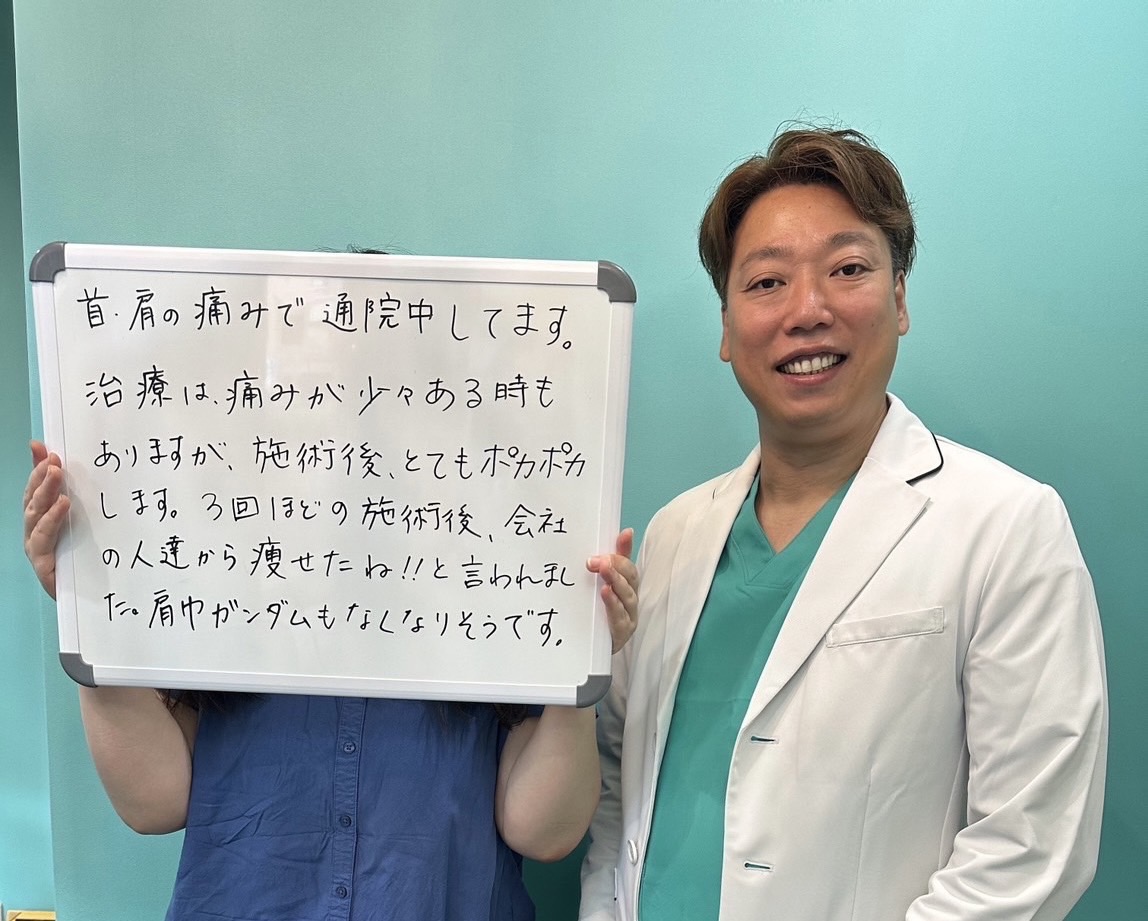 首・肩の痛みで通院中してます。
治療は、痛みが少々ある時も
ありますが、施術後、とてもポカポカ
します。3回ほどの施術後、会社
の人達から痩せたね!!と言われまし
た。肩巾ガンダムもなくなりそうです。